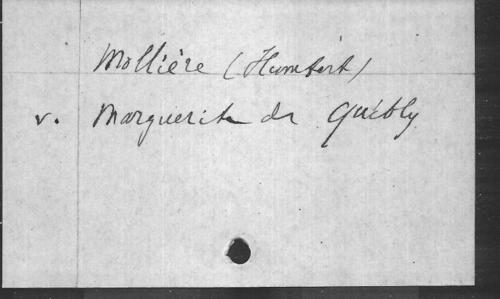 Mollière (Humbert)
v. Marguerite de Quibly